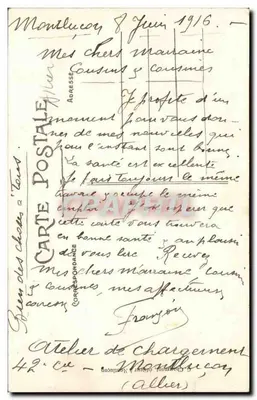 Montluçon 8 Juin 1916. —
Mes chers marraine
Cousins & cousines
Je profite d'un
moment pour vous don-
ner de mes nouvelles qui
pour l'instant sont bonnes
La santé est excellente
Je fais toujours le même
travail
cette carte vous trouvera
en bonne santé & au plaisir
de vous lire Recevez
Mes chers marraine cousins
& cousines mes affectueux
François
Atelier de chargement
42e Cie — Montluçon
(Allier)
Bien des choses à tous
CARTE POSTALE
CORRESPONDANCE
ADRESSE